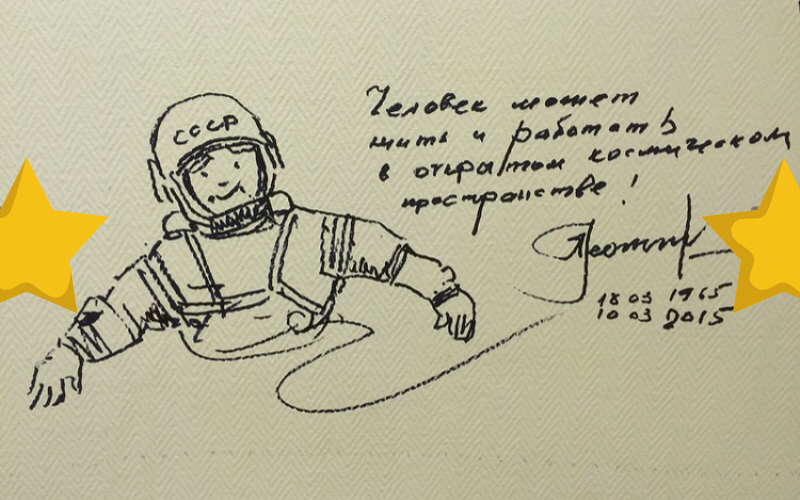 СССР
Человек может
жить и работать
в открытом космическом
пространстве!
Леонов
18 03 1965
10 03 2015